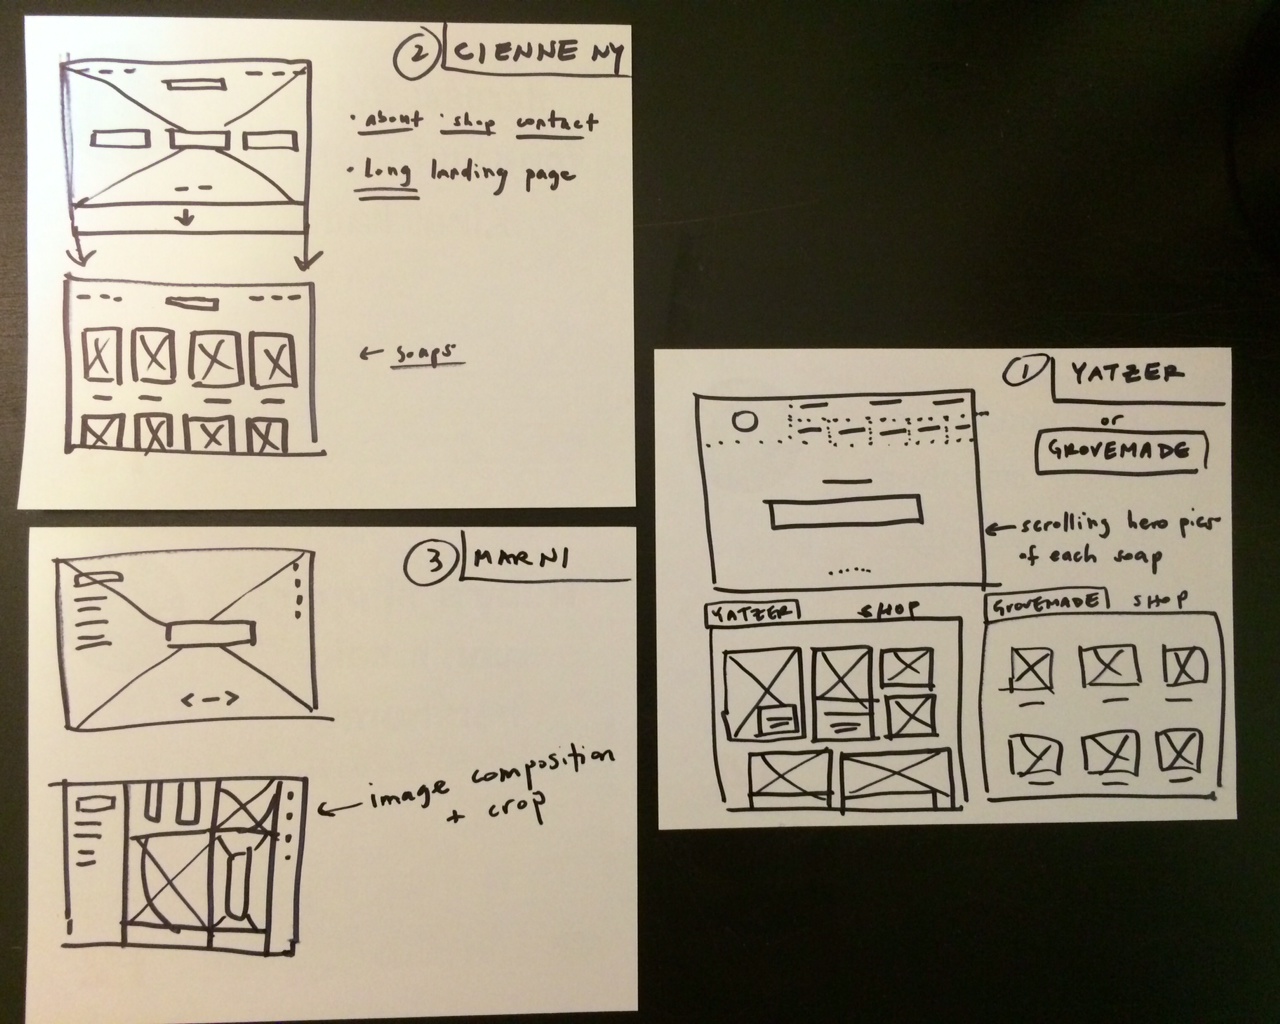 2 CIENNE NY
· about · shop contact
· long landing page
← soaps
3 MARNI
← image composition
+ crop
1 YATZER
or
GROVEMADE
← scrolling hero pics
of each soap
YATZER SHOP
GROVEMADE SHOP